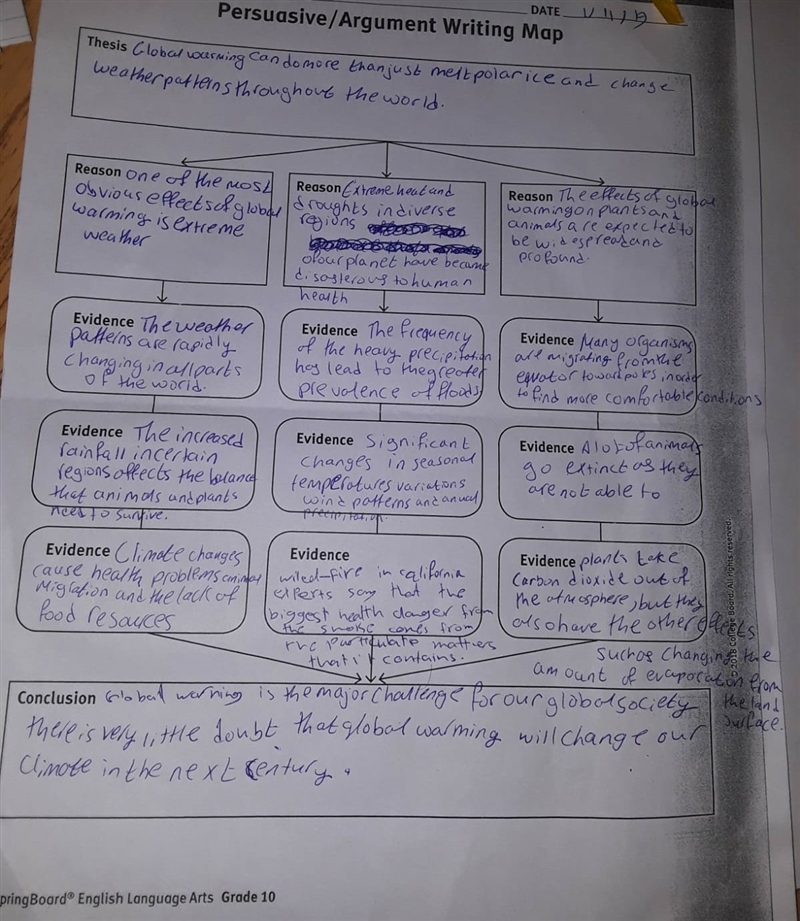 DATE 1/11/19
Persuasive/Argument Writing Map
Thesis Global warming can do more than just melt polar ice and change
weather patterns throughout the world.
Reason one of the most
obvious effects of global
warming is extreme
weather
Reason Extreme heat and
droughts in diverse
regions
of our planet have became
disasterous to human
health
Reason The effects of global
warming on plants and
animals are expected to
be widespread and
profound.
Evidence The weather
patterns are rapidly
changing in all parts
of the world.
Evidence The frequency
of the heavy precipitation
has lead to the greater
prevalence of floods
Evidence Many organisms
are migrating from the
equator toward poles in order
to find more comfortable conditions
Evidence The increased
rainfall in certain
regions affects the balance
that animals and plants
need to survive.
Evidence Significant
changes in seasonal
temperatures variations
wind patterns and annual
precipitation.
Evidence A lot of animals
go extinct as they
are not able to
Evidence Climate changes
cause health problems animal
migration and the lack of
food resources
Evidence
wiled-fire in california
experts say that the
biggest health danger from
the smoke comes from
the particulate matters
that it contains.
Evidence plants take
Carbon dioxide out of
the atmosphere, but they
also have the other effects
such as changing the
amount of evaporation from
the land
surface.
Conclusion Global warning is the major challenge for our global society
there is very little doubt that global warming will change our
Climate in the next century.
© 2018 College Board. All rights reserved.
pringBoard® English Language Arts Grade 10